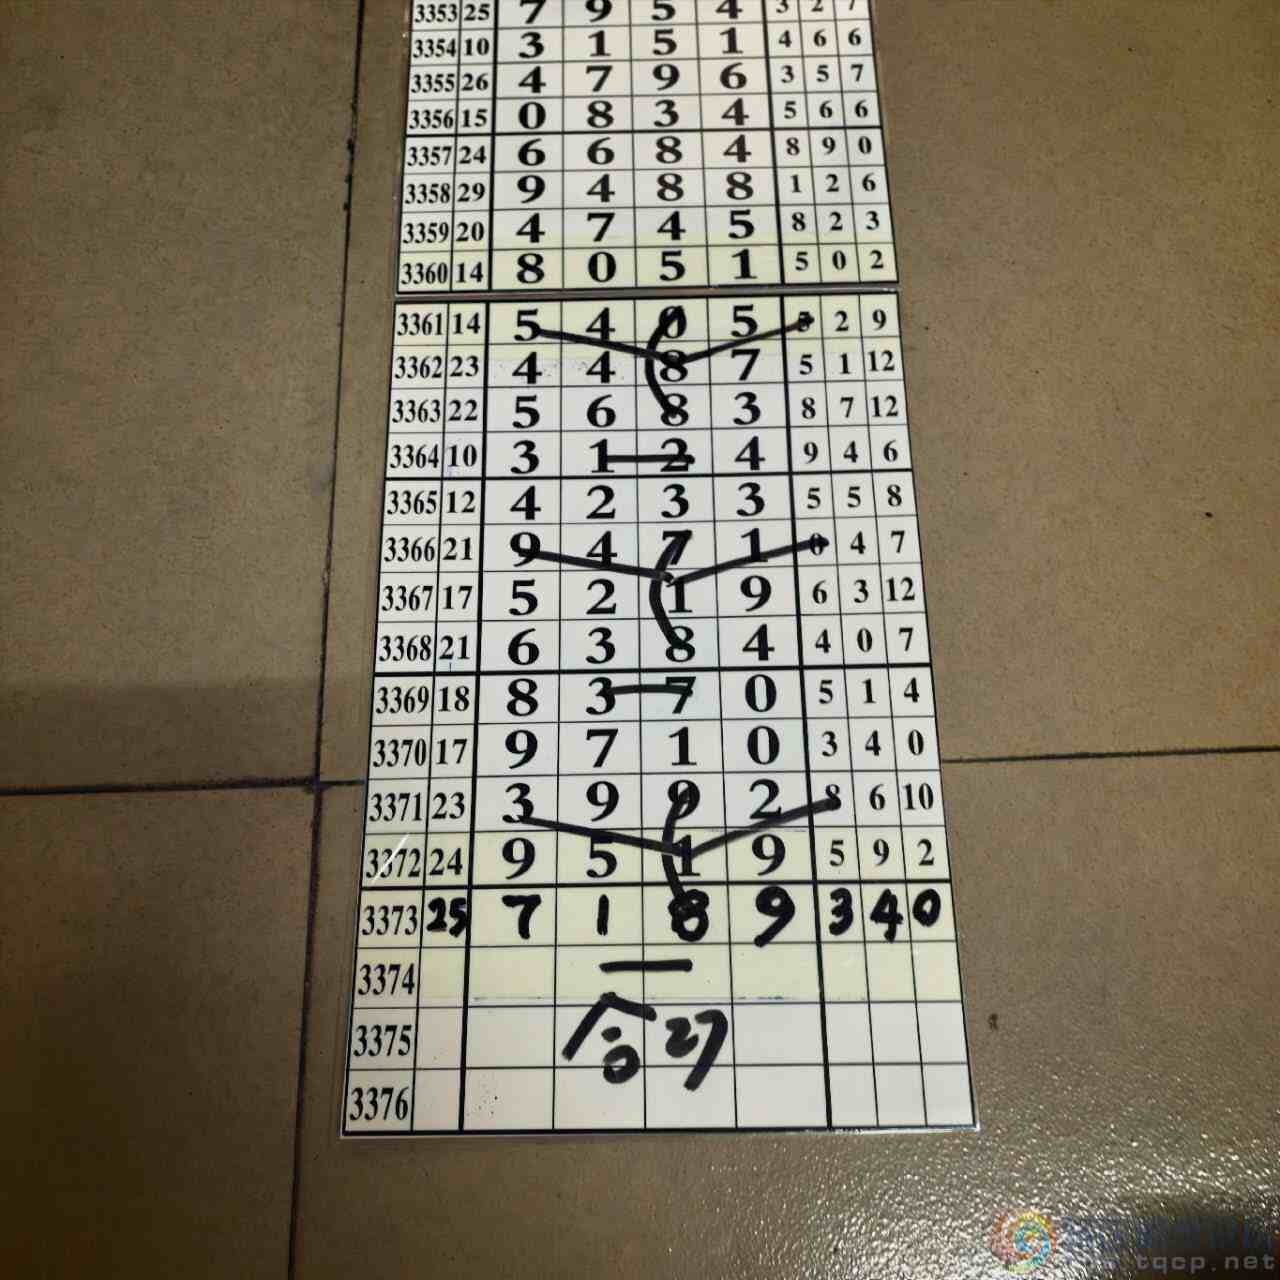 3353 25 7 9 5 4 3 2 7
3354 10 3 1 5 1 4 6 6
3355 26 4 7 9 6 3 5 7
3356 15 0 8 3 4 5 6 6
3357 24 6 6 8 4 8 9 0
3358 29 9 4 8 8 1 2 6
3359 20 4 7 4 5 8 2 3
3360 14 8 0 5 1 5 0 2
3361 14 5 4 0 5 3 2 9
3362 23 4 4 8 7 5 1 12
3363 22 5 6 8 3 8 7 12
3364 10 3 1 2 4 9 4 6
3365 12 4 2 3 3 5 5 8
3366 21 9 4 7 1 0 4 7
3367 17 5 2 1 9 6 3 12
3368 21 6 3 8 4 4 0 7
3369 18 8 3 7 0 5 1 4
3370 17 9 7 1 0 3 4 0
3371 23 3 9 9 2 8 6 10
3372 24 9 5 1 9 5 9 2
3373 25 7 1 8 9 3 4 0
3374
3375 合 27
3376
tqcp.net